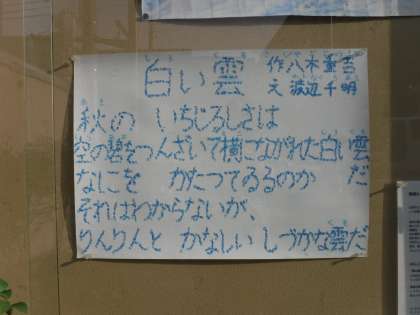 白い雲 作 八木重吉
文 渡辺千明
秋の いちじるしさは
空の碧をつんざいて横にながれた白い雲だ
なにを かたつてゐるのか
それはわからないが、
りんりんと かなしい しづかな雲だ